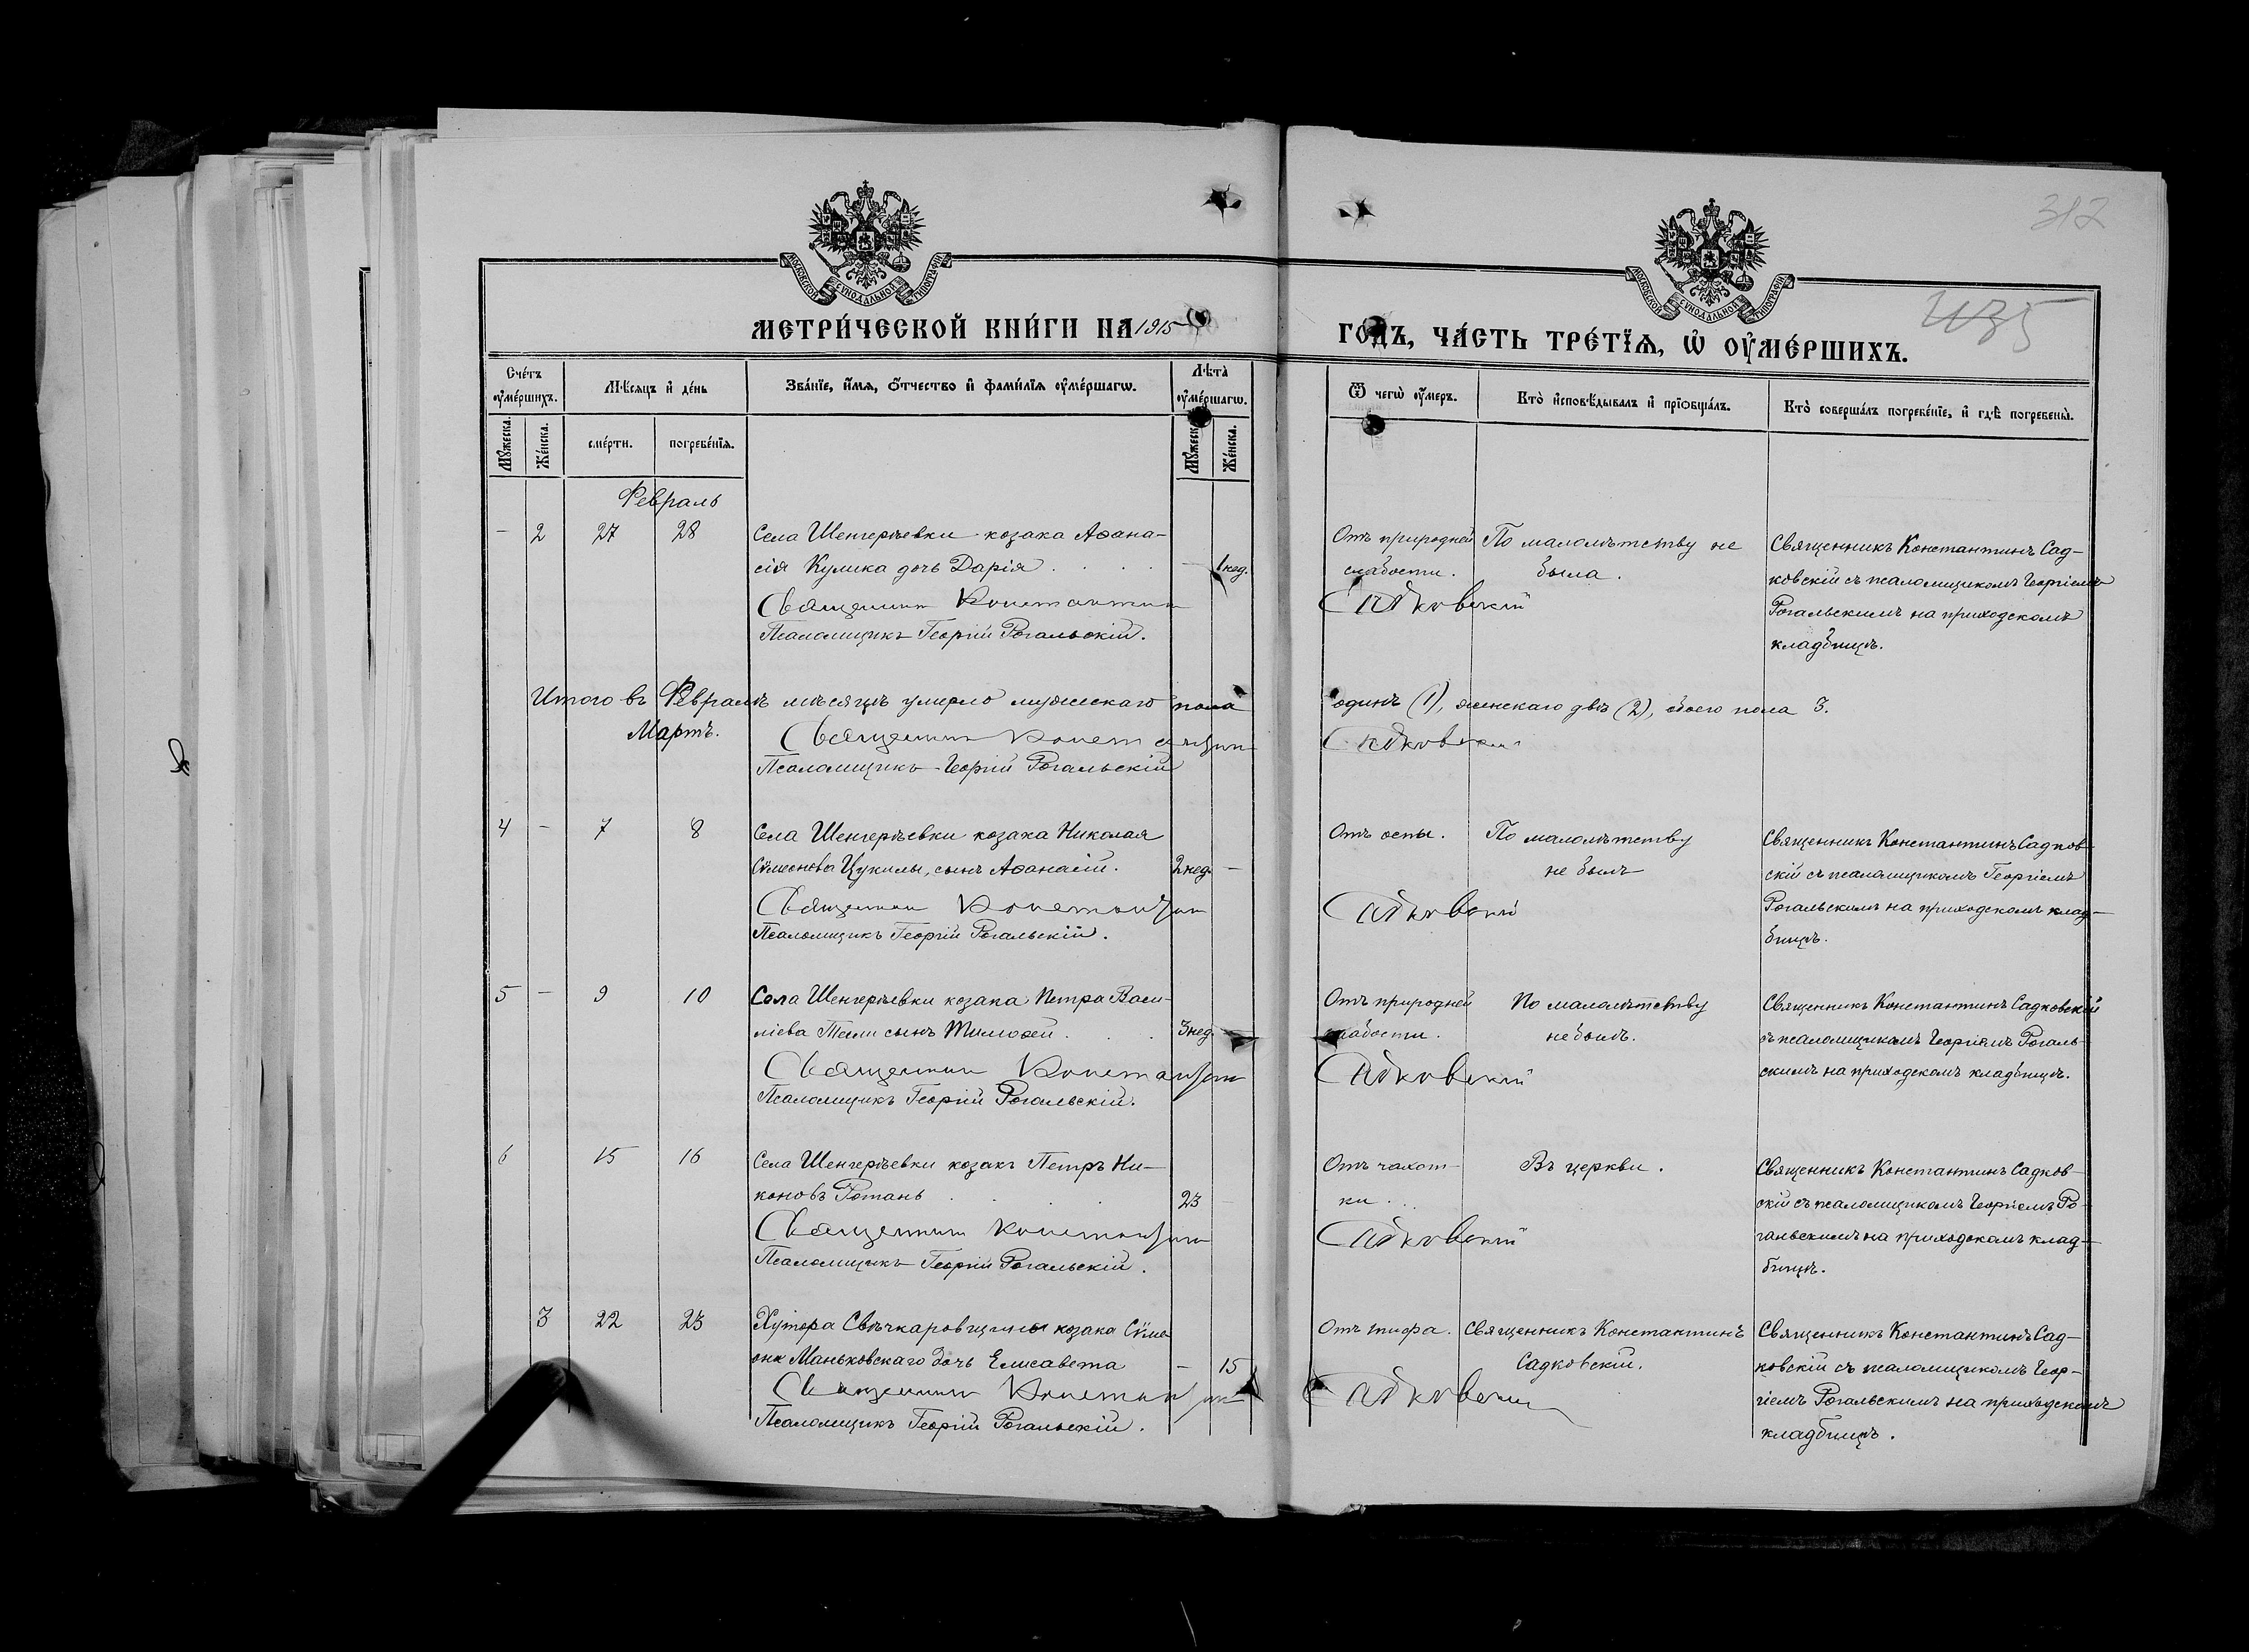 312
МОСКОВСКОЙ СУНОДАЛЬНОЙ ТИПОГРАФІИ
МОСКОВСКОЙ СУНОДАЛЬНОЙ ТИПОГРАФІИ
МЕТРИ́ЧЕСКОЙ КНИ́ГИ НА 1915
ГО́ДЪ, ЧА́СТЬ ТРЕ́ТЇѦ, Ѡ҆ ОУ҆МЕ́РШИХЪ.
Сче́тъ оу҆ме́ршихъ.
Мѣ́сяцъ и҆ де́нь
Зва́нїе, и҆́мѧ, ѻ҆́тчество и҆ фами́лїѧ оу҆ме́ршагѡ.
Лѣ́та оу҆ме́ршагѡ.
Ѿ чегѡ̀ оу҆́меръ.
Кто̀ и҆сповѣ́дывалъ и҆ прїѡбща́лъ.
Кто̀ соверша́лъ погребе́нїе, и҆ гдѣ̀ погребены̀.
Мꙋ́жеска.
Же́нска.
сме́рти.
погребе́нїѧ.
Мꙋ́жеска.
Же́нска.
Февраль
- 2 27 28 Села Шенгерѣевки козака Аѳана-
сія Кулика дочь Дарія . . . . - 1 нед.
Священник Константин
Псаломщикъ Георгій Рогальскій.
Отъ природней
слабости.
Садковскій
По малолѣтству не
была.
Священникъ Константинъ Сад-
ковскій съ псаломщикомъ Георгіемъ
Рогальскимъ на приходскомъ
кладбищѣ.
Итого въ Февралѣ мѣсяцѣ умерло мужескаго пола одинъ (1), женскаго двѣ (2), обоего пола 3.
Мартъ.
Священник Константин Садковскій
Псаломщикъ Георгій Рогальскій
4 - 7 8 Села Шенгерѣевки козака Николая
Сѵмеонова Цукилы, сынъ Аѳанасій. 2 нед. -
Священник Константин
Псаломщикъ Георгій Рогальскій.
Отъ оспы.
Садковскій
По малолѣтству
не былъ
Священникъ Константинъ Садков-
скій съ псаломщикомъ Георгіемъ
Рогальскимъ на приходскомъ клад-
бищѣ.
5 - 9 10 Села Шенгерѣевки козака Петра Васи-
ліева сынъ Тимоѳей . . . 3 нед. -
Священник Константин
Псаломщикъ Георгій Рогальскій.
Отъ природней
слабости.
Садковскій
По малолѣтству
не былъ.
Священникъ Константинъ Садковскій
съ псаломщикомъ Георгіемъ Рогаль-
скимъ на приходскомъ кладбищѣ.
6 15 16 Села Шенгерѣевки козакъ Петръ Ни-
коновъ Ротань . . . 23 -
Священник Константин
Псаломщикъ Георгій Рогальскій.
Отъ чахот-
ки.
Садковскій
Въ церкви.
Священникъ Константинъ Садков-
скій съ псаломщикомъ Георгіемъ Ро-
гальскимъ на приходскомъ клад-
бищѣ.
3 22 23 Хутора Свѣчкаровщины козака Сѵме-
она Маньковскаго дочь Елисавета - 15
Священник Константин
Псаломщикъ Георгій Рогальскій.
Отъ тифа.
Садковскій
Священникъ Константинъ
Садковскій.
Священникъ Константинъ Сад-
ковскій съ псаломщикомъ Геор-
гіемъ Рогальскимъ на приходскомъ
кладбищѣ.